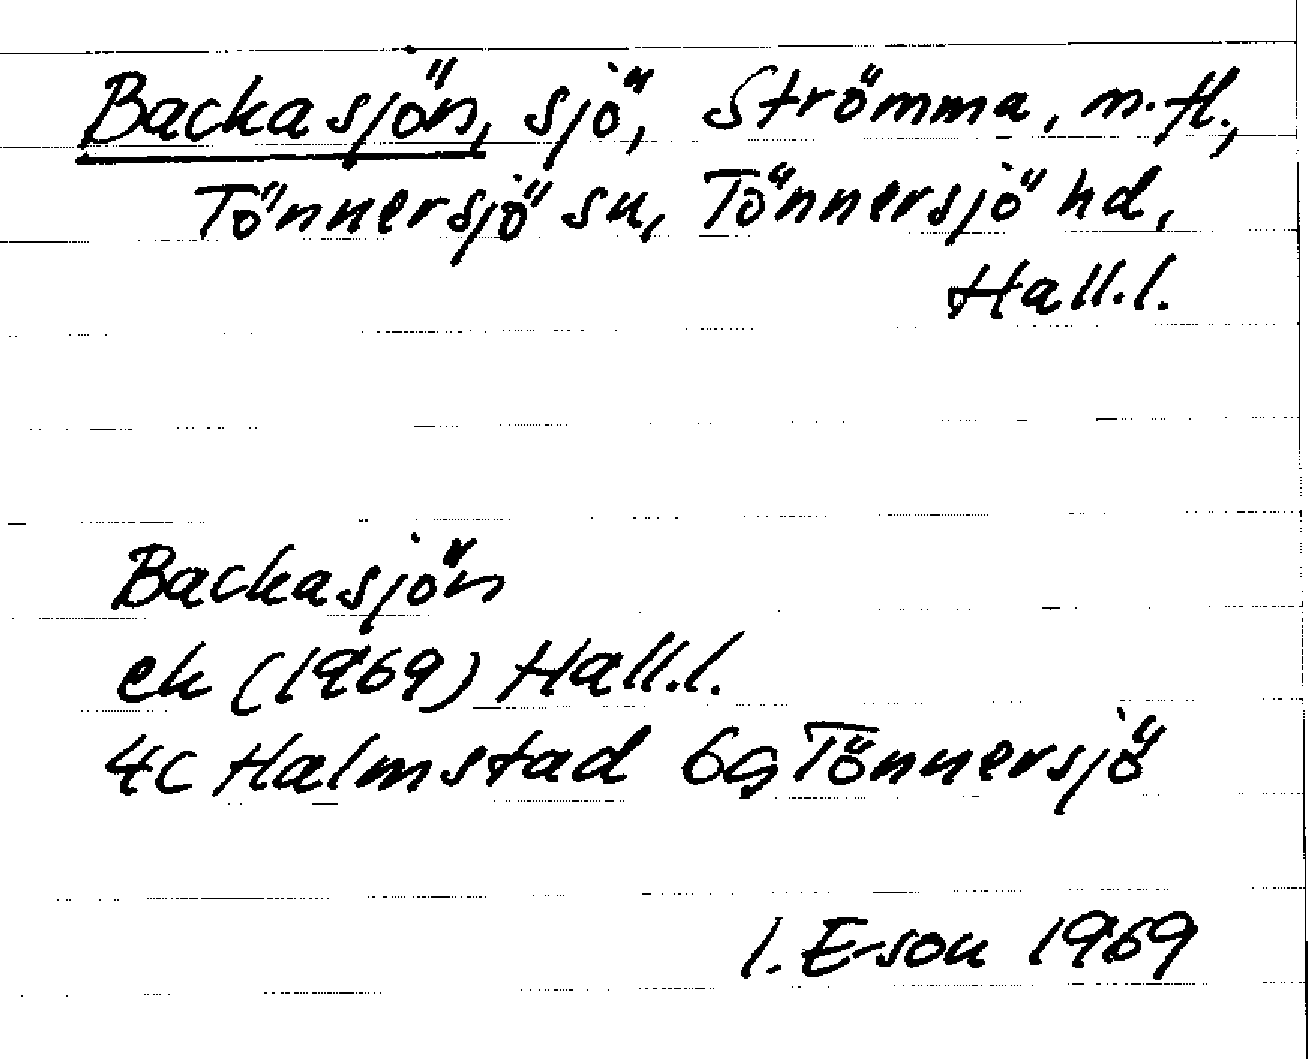 Backasjön, sjö, Strömma, m.fl.,
Tönnersjö sn, Tönnersjö hd,
Hall.l.
Backasjön
ek (1969) Hall.l.
4c Halmstad 6g Tönnersjö
I. E-son 1969